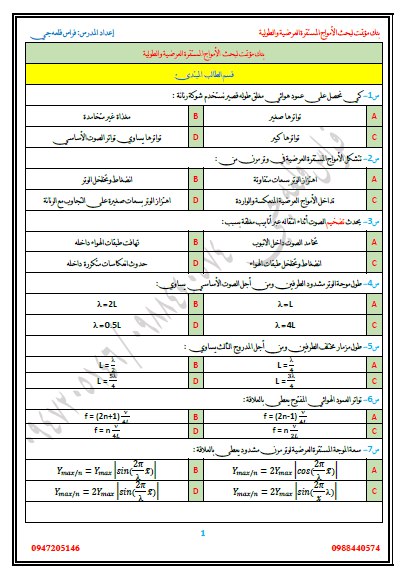 بنك مؤتمت لبحث الأمواج المستقرة العرضية والطولية
إعداد المدرس: فراس قلعه جي
بنك مؤتمت لبحث الأمواج المستقرة العرضية والطولية
قسم الطالب المبتدئ:
س1- كي نحصل على عمود هوائي مغلق طوله قصير نستخدم شوكة رنانة :
A تواترها صغير B مغذاة غير متخامدة
C تواترها كبير D تواترها يساوي تواتر الصوت الأساسي
س2- تتشكل الأمواج المستقرة العرضية في وتر مرن من :
A اهتزاز الوتر بسعات متفاوتة B انضغاط وتخلخل الوتر
C تداخل الأمواج العرضية المنعكسة والواردة D اهتزاز الوتر بسعات صغيرة على التجاوب مع الرنانة
س3- يحدث تضخيم الصوت أثناء انتقاله عبر أنابيب مغلقة بسبب:
A تخامد الصوت داخل الانبوب B تهافت طبقات الهواء داخله
C انضغاط وتخلخل طبقات الهواء D حدوث انعكاسات متكررة داخله
س4- طول موجة الوتر مشدود الطرفين ومن أجل الصوت الأساسي يساوي :
A λ = L B λ = 2L
C λ = 4L D λ = 0.5L
س5- طول مزمار مختلف الطرفين ومن أجل المدروج الثالث يساوي :
A L = λ/4 B L = λ/2
C L = 3λ/4 D L = 5λ/4
س6- تواتر العمود الهوائي المفتوح يعطى بالعلاقة:
A f = (2n-1) v/4L B f = (2n+1) v/4L
C f = n v/2L D f = n v/4L
س7- سعة الموجة المستقرة العرضية لوتر مرن مشدود يعطى بالعلاقة :
A Ymax/n = 2Ymax |cos(2π/λ x̄)| B Ymax/n = Ymax |sin(2π/λ x̄)|
C Ymax/n = 2Ymax |sin(2π/x̄ λ)| D Ymax/n = 2Ymax |sin(2π/λ x̄)|
1
0947205146
0988440574